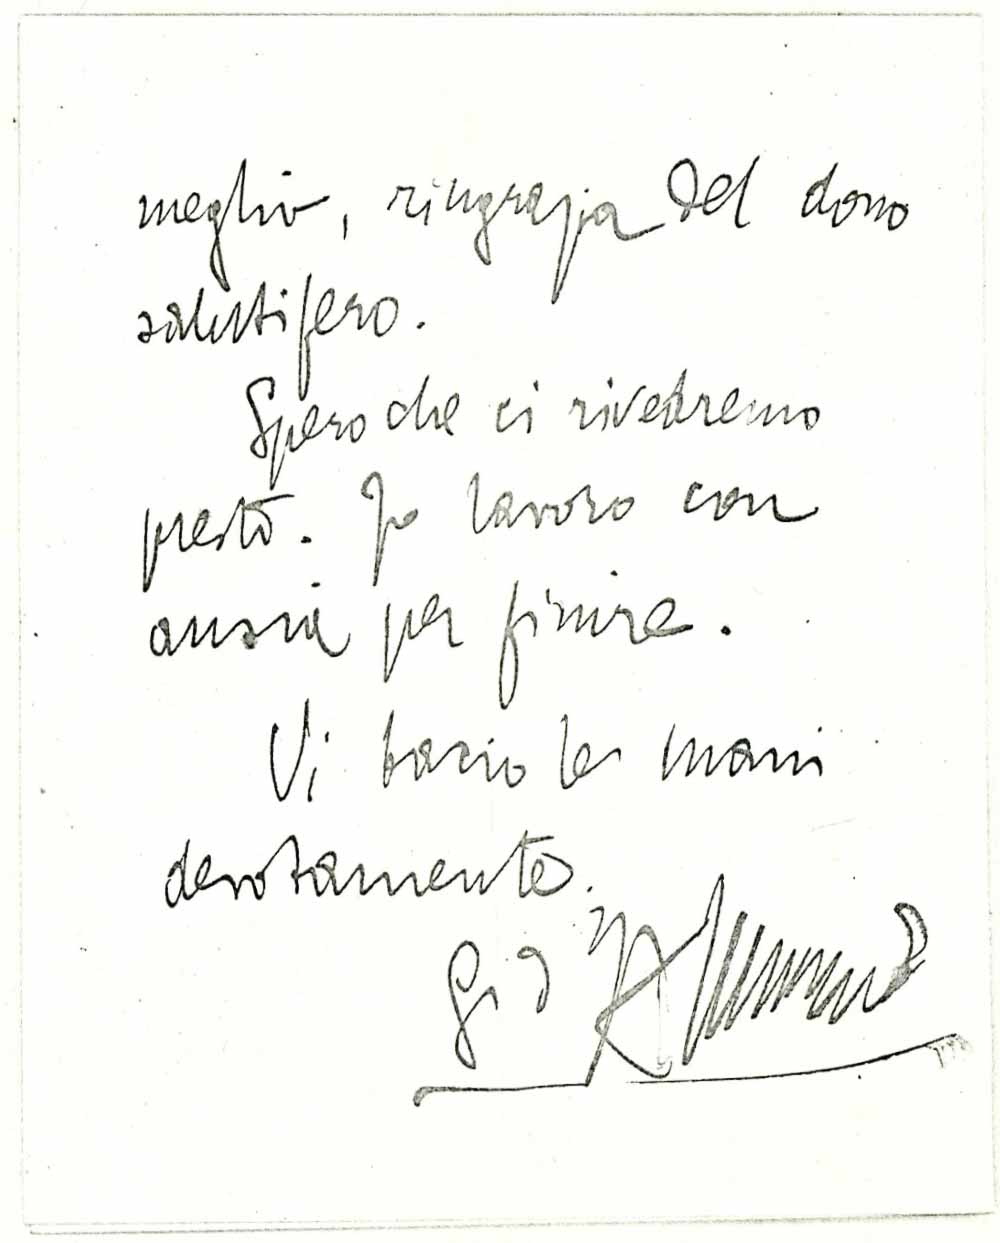 meglio, ringrazia del dono
salutifero.
Spero che ci rivedremo
presto. Io lavoro con
ansia per finire.
Vi bacio le mani
devotamente.